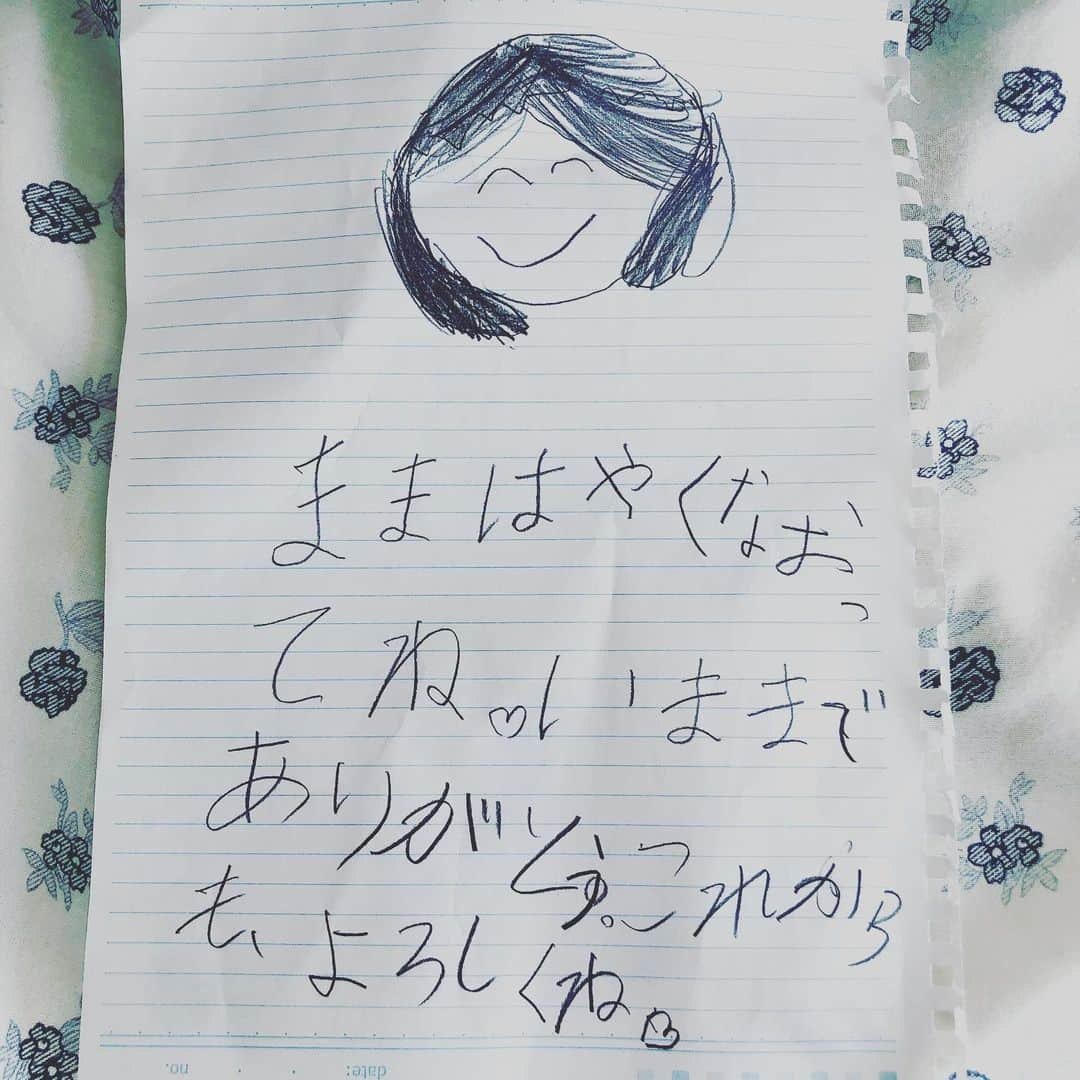 ままはやくなおっ
てね。♡いままで
ありがとう。これから
も、よろしくね。♡
date:
no.